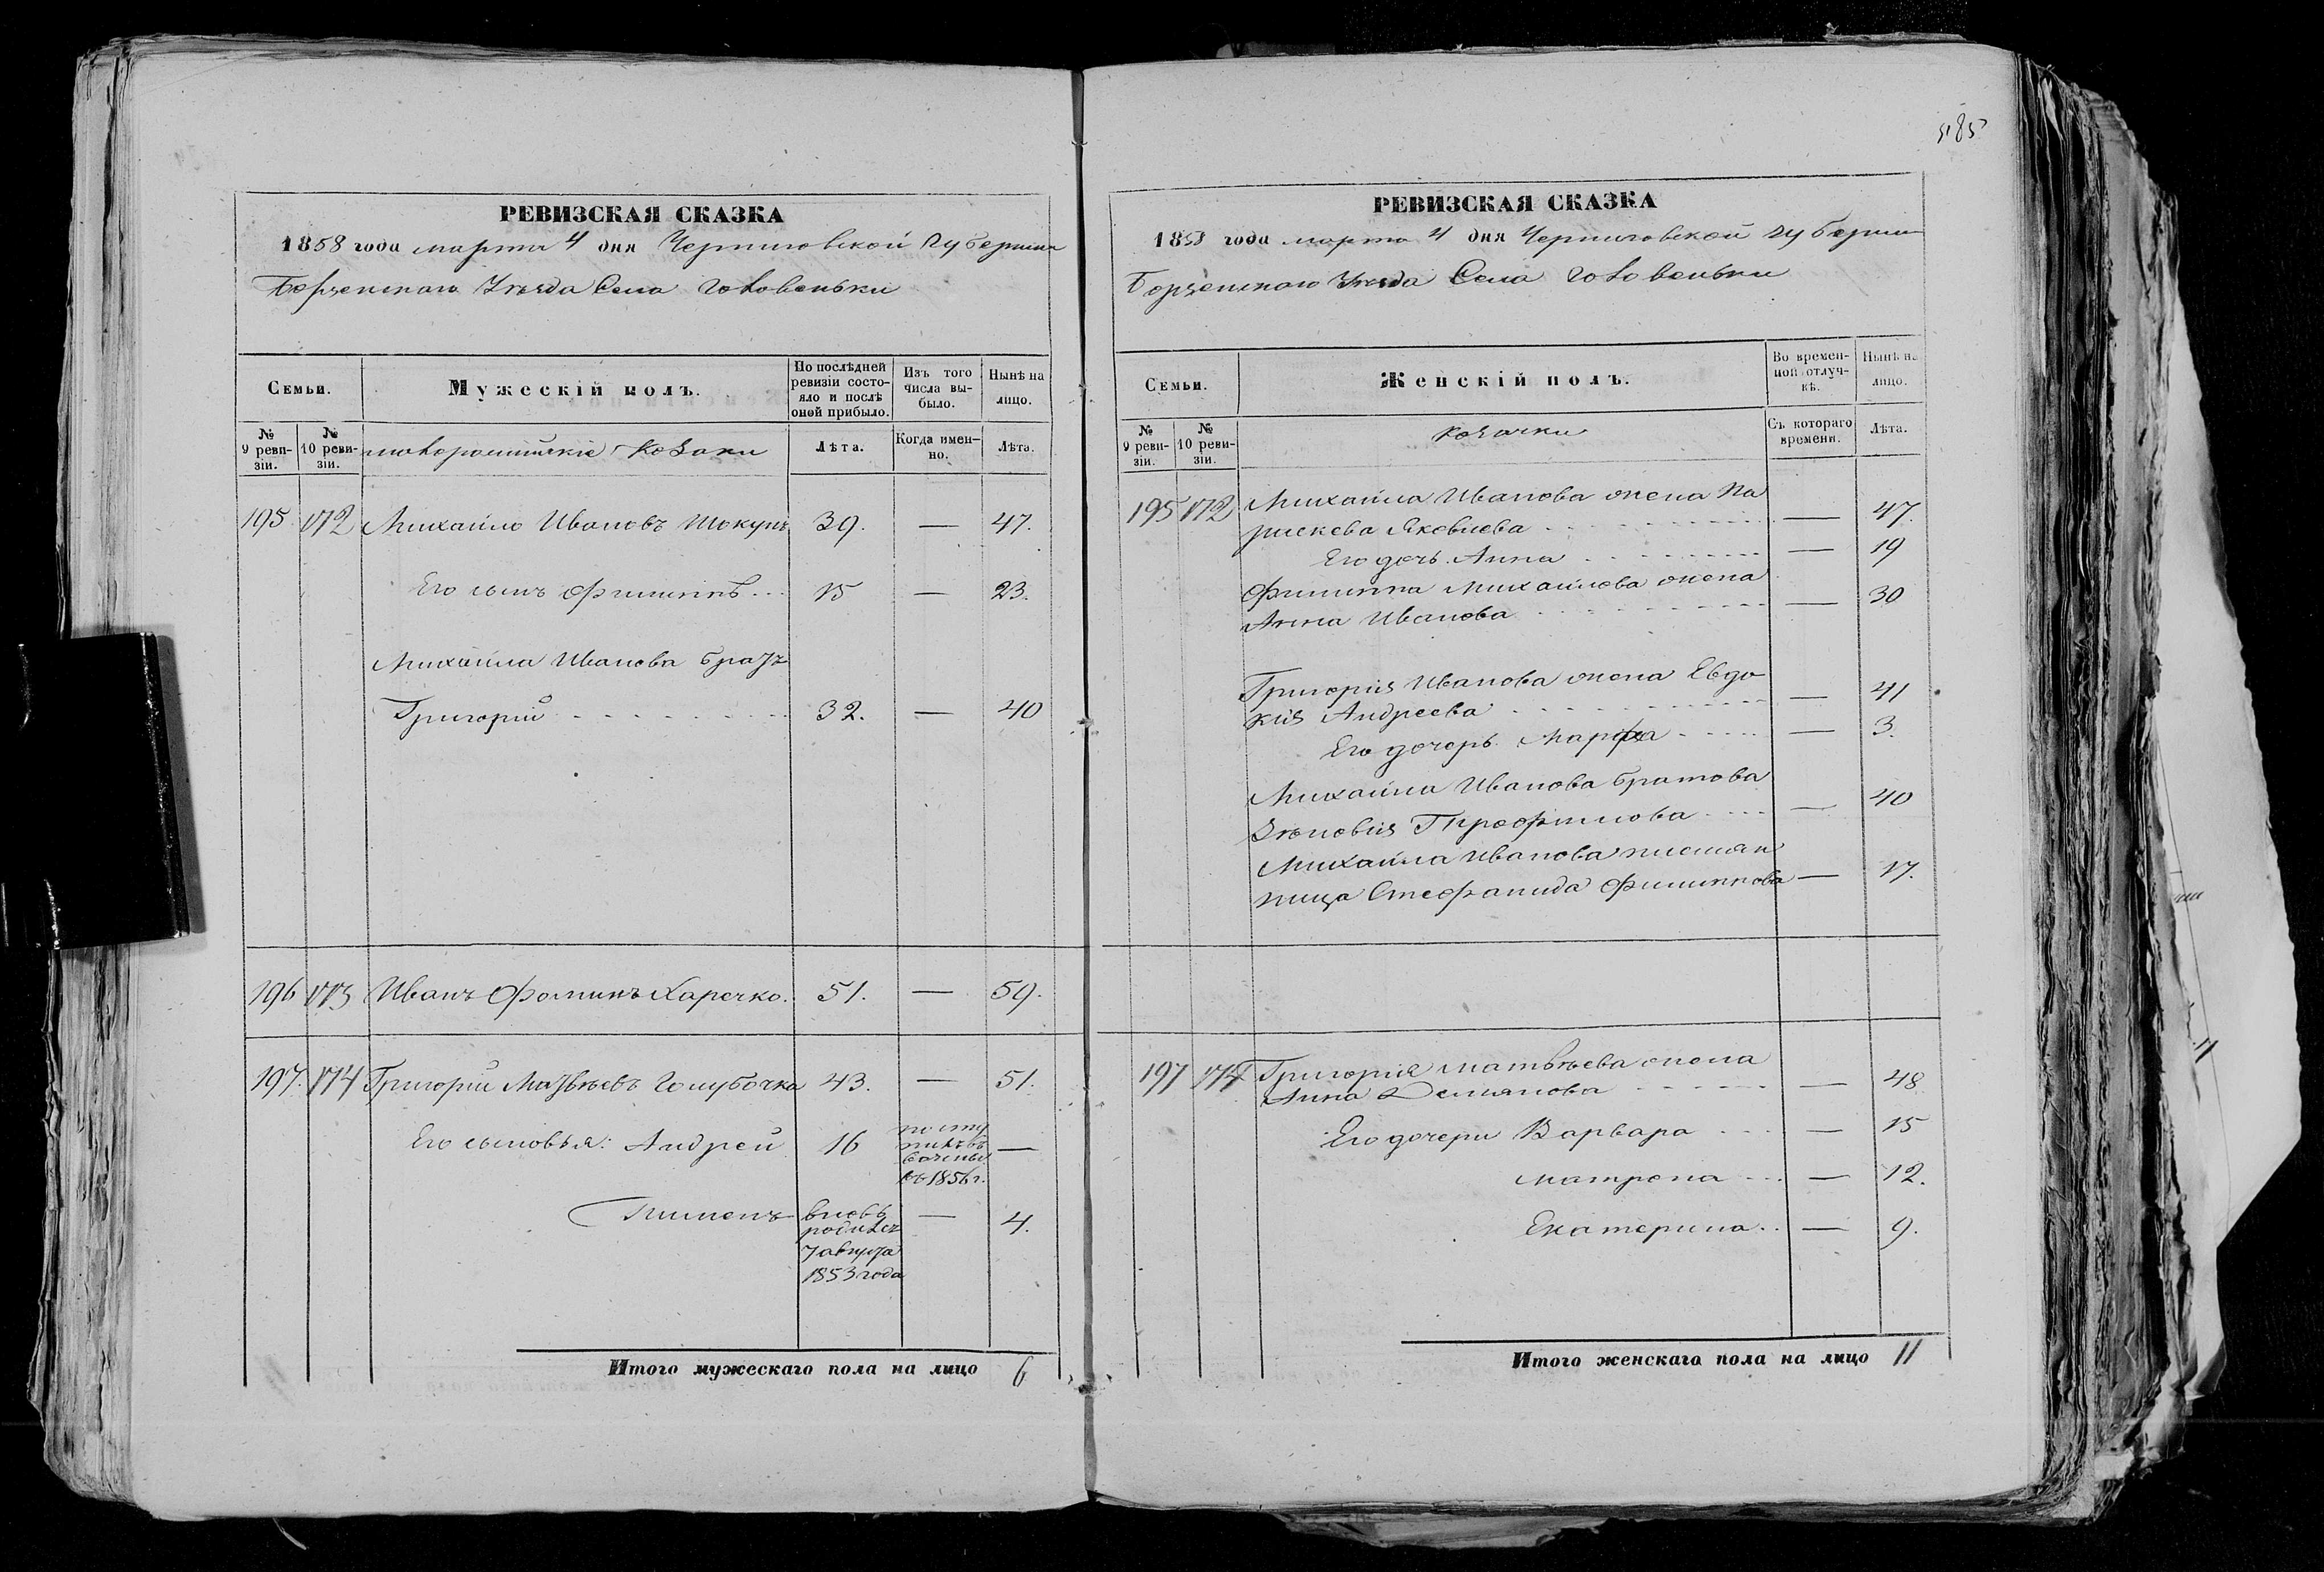 585
РЕВИЗСКАЯ СКАЗКА
1858 года марта 4 дня Черниговской губернии
Борзенского Уезда Села Головеньки
Семьи.
Мужескій полъ.
По послѣдней ревизіи состояло и послѣ оной прибыло.
Изъ того числа выбыло.
Нынѣ на лицо.
№ 9 ревизіи.
№ 10 ревизіи.
малороссийскіе Козаки
Лѣта.
Когда именно.
Лѣта.
195 172 Михайло Ивановъ Шокунъ 39. — 47.
Его сынъ Филиппъ 15 — 23.
Михайла Иванова братъ
Григорій 32. — 40
196 173 Иванъ Фоминъ Харечко. 51. — 59.
197. 174 Григорій Матвѣевъ Голубочка 43. — 51.
Его сыновья: Андрей 16 —
въ 1856 г.
Пименъ вновь — 4.
родился
7 августа
1853 года
Итого мужескаго пола на лицо 6
РЕВИЗСКАЯ СКАЗКА
1858 года марта 4 дня Черниговской губернии
Борзенского Уезда Села Головеньки
Семьи.
Женскій полъ.
Во временной отлучкѣ.
Нынѣ на лицо.
№ 9 ревизіи.
№ 10 ревизіи.
Козачки
Съ котораго времени.
Лѣта.
195 172 Михайла Иванова жена Па
раскева Яковлева — 47.
Его дочь Анна — 19
Филиппа Михайлова жена
Анна Иванова — 30
Григорія Иванова жена Евдо
кія Андреева — 41
Его дочерь Марфа — 3.
Михайла Иванова братова
Зѣновія Трофимова — 40
Михайла Иванова племян
ница Стефанида Филиппова — 17.
197 174 Григорія Матвѣева жена
Анна Демянова — 48
Его дочери Варвара — 15
Матрона — 12.
Екатерина — 9.
Итого женскаго пола на лицо 11